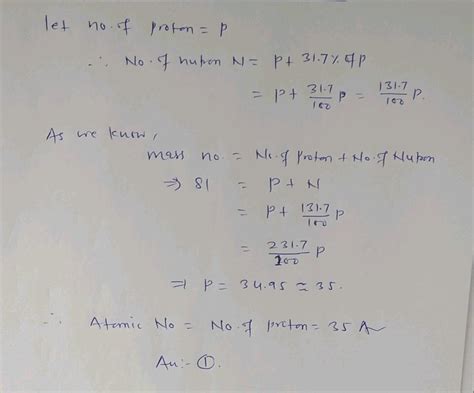 let no. of proton = p
∴ No. of nutron N = p + 31.7% of p
= p + 31.7/100 p = 131.7/100 p.
As we know,
mass no. = No. of proton + No. of Nutron
⇒ 81 = p + N
= p + 131.7/100 p
= 231.7/100 p
⇒ p = 34.95 ≃ 35.
∴ Atomic No = No. of proton = 35
An:- ①.